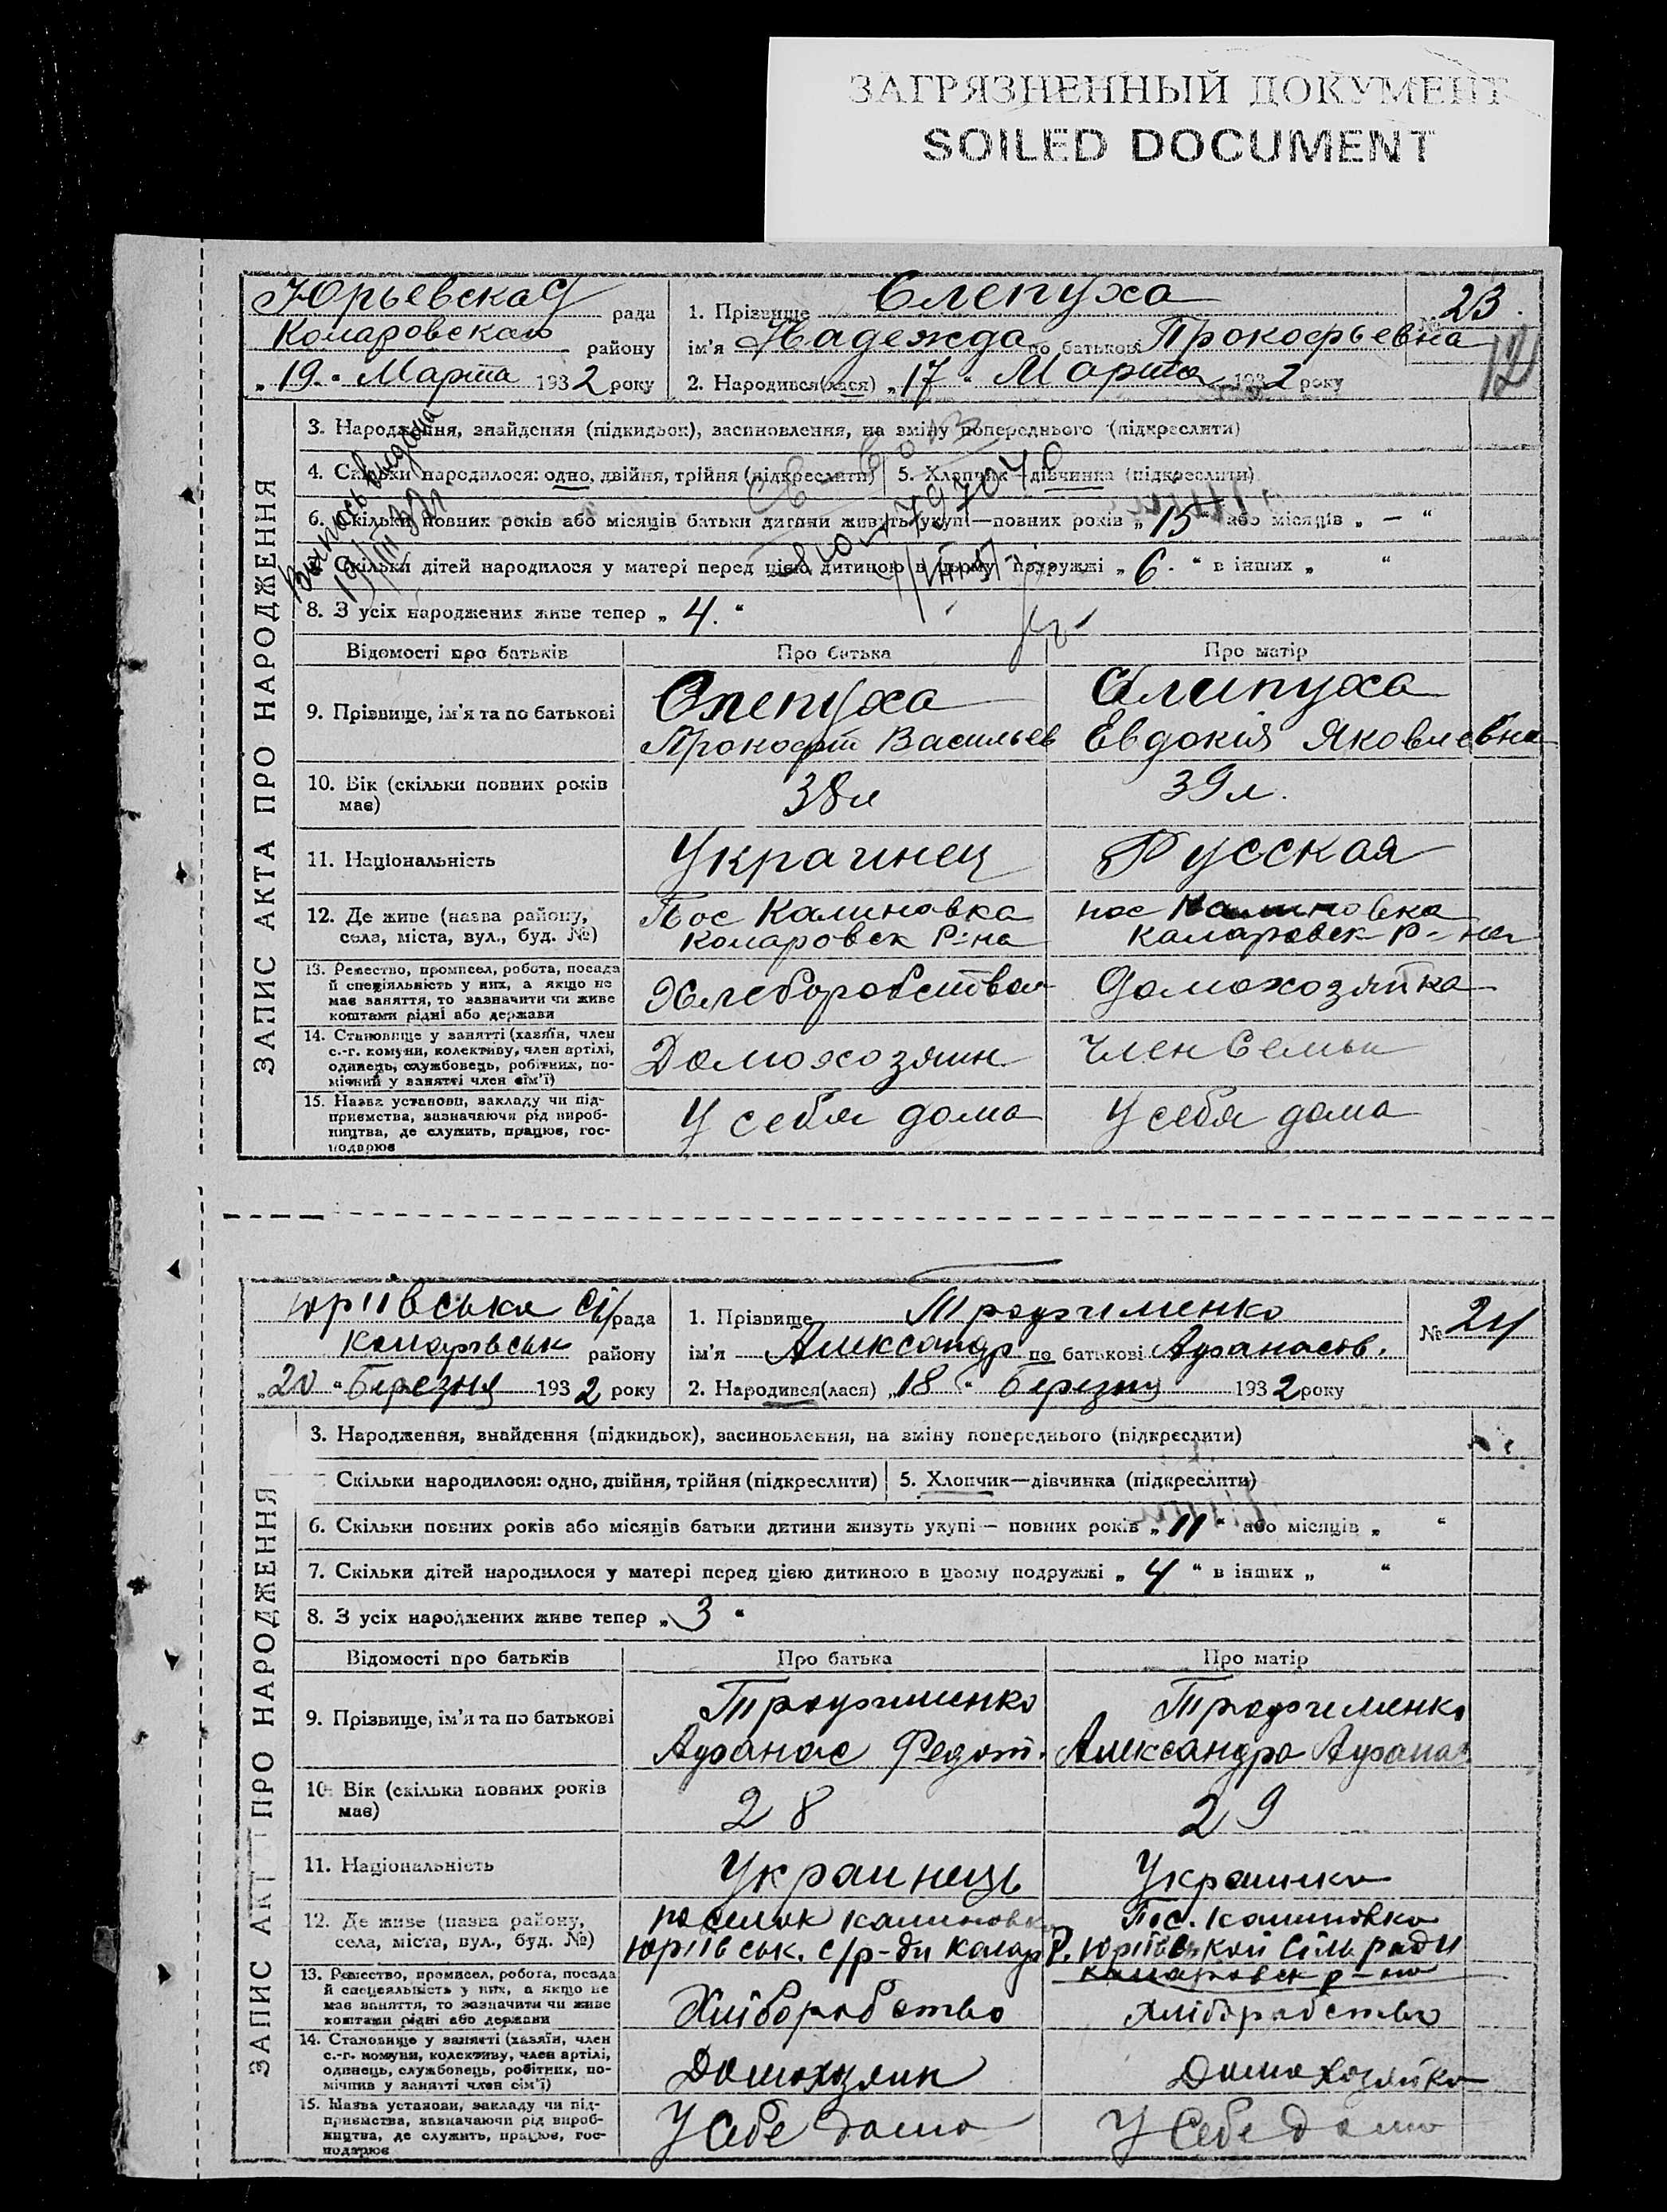 ЗАГРЯЗНЕННЫЙ ДОКУМЕНТ
SOILED DOCUMENT
Юрьевская рада
Комаровского району
„19.“ Марта 1932 року
1. Прізвище Слепуха
ім'я Надежда по батькові Прокофьевна
2. Народився(лася) „17“ Марта 1932 року
№ 23.
12
ЗАПИС АКТА ПРО НАРОДЖЕННЯ
3. Народження, знайдення (підкидьок), засиновлення, на зміну попереднього (підкреслити)
4. Скільки народилося: одно, двійня, трійня (підкреслити) 5. Хлопчик—дівчинка (підкреслити)
6. Скільки повних років або місяців батьки дитини живуть укупі—повних років „15“ або місяців „ – “
Скільки дітей народилося у матері перед цією дитиною в цьому подружжі „6.“ в інших „ “
8. З усіх народжених живе тепер „4.“
Відомості про батьків Про батька Про матір
9. Прізвище, ім'я та по батькові
Слепуха
Прокофит Васильев
Слипуха
Евдокия Яковлевна
10. Вік (скільки повних років має)
38 л
39 л.
11. Національність
Украинец
Русская
12. Де живе (назва району, села, міста, вул., буд. №)
Пос Калиновка
Комаровск Р-на
пос Калиновка
Камаровск р-на
13. Ремество, промисел, робота, посада
й спеціяльність у них, а якщо не
має заняття, то зазначити чи живе
коштами рідні або держави
Хлеборобства
Домохозяйка
14. Становище у занятті (хазяїн, член
с.-г. комуни, колективу, член артілі,
одинець, службовець, робітник, по-
мічний у занятті член сім'ї)
Домохозяин
Член Семьи
15. Назва установи, закладу чи під-
приємства, зазначаючи рід вироб-
ництва, де служить, працює, гос-
подарює
У себя дома
У себя дома
Юріівська сі/рада
Комарівськ району
„20“ Березня 1932 року
1. Прізвище Трофименко
ім'я Александр по батькові Афанасов.
2. Народився(лася) „18“ Березня 1932 року
№ 24
ЗАПИС АКТ ПРО НАРОДЖЕННЯ
3. Народження, знайдення (підкидьок), засиновлення, на зміну попереднього (підкреслити)
Скільки народилося: одно, двійня, трійня (підкреслити) 5. Хлопчик—дівчинка (підкреслити)
6. Скільки повних років або місяців батьки дитини живуть укупі — повних років „11“ або місяців „ “
7. Скільки дітей народилося у матері перед цією дитиною в цьому подружжі „4“ в інших „ “
8. З усіх народжених живе тепер „3“
Відомості про батьків Про батька Про матір
9. Прізвище, ім'я та по батькові
Трофименко
Афанас Федот.
Трофименко
Александра
10. Вік (скільки повних років має)
28
29
11. Національність
Украинець
Украинка
12. Де живе (назва району, села, міста, вул., буд. №)
поселок Калиновка
Юріівськ. с/р-ди Комар Р.
Пос. Калиновка
Юріівської Сільради
Камаровск р-на
13. Ремество, промисел, робота, посада
й спеціяльність у них, а якщо не
має заняття, то зазначити чи живе
коштами рідні або держави
Хліборобство
Хліборобство
14. Становище у занятті (хазяїн, член
с.-г. комуни, колективу, член артілі,
одинець, службовець, робітник, по-
мічник у занятті член сім'ї)
Домохозяин
Домохозяйка
15. Назва установи, закладу чи під-
приємства, зазначаючи рід вироб-
ництва, де служить, працює, гос-
подарює
У Себе дома
У Себе дома